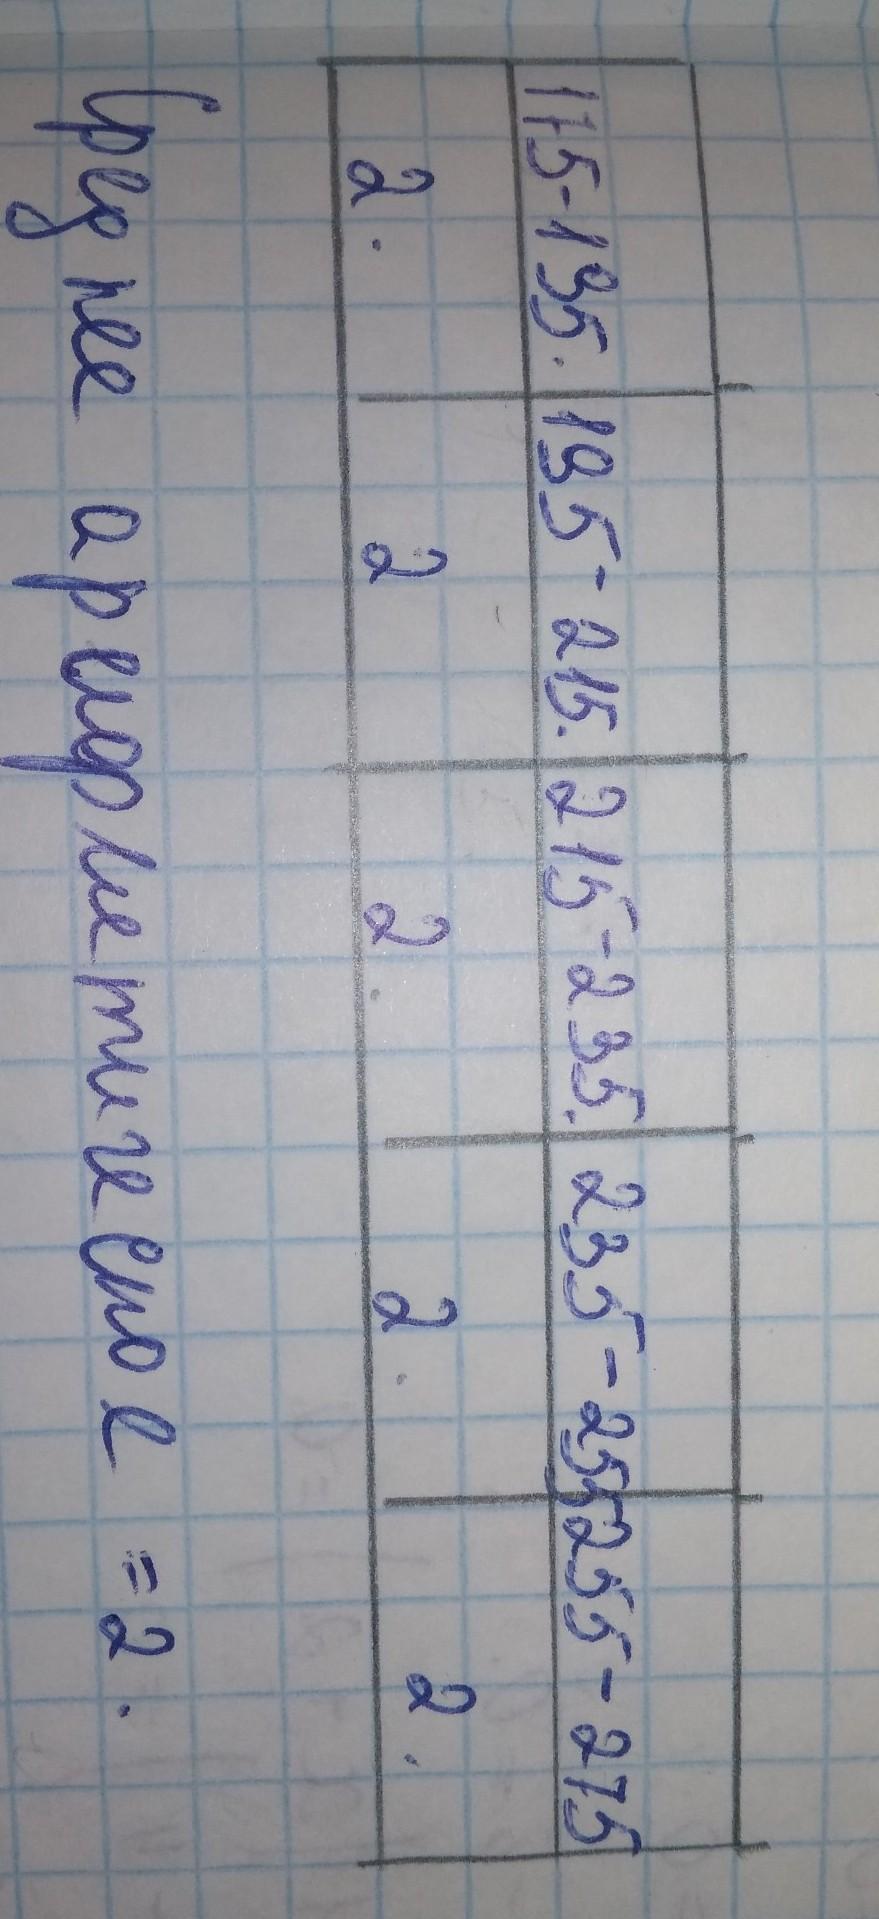 175-195. 195-215. 215-235. 235-255 255-275
2. 2 2. 2. 2.
Среднее арифметическое = 2.